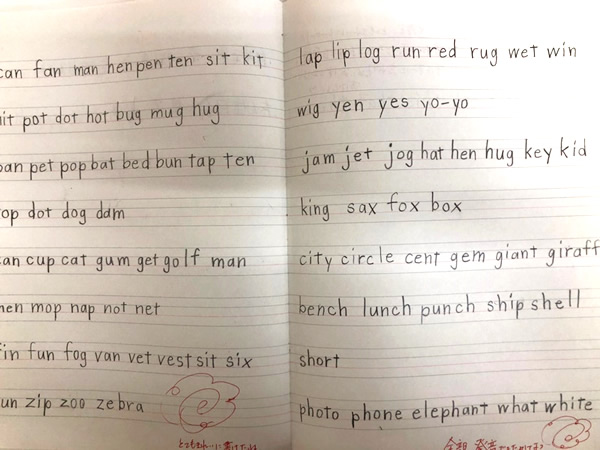 can fan man hen pen ten sit kit
pot dot hot bug mug hug
pet pop bat bed bun tap ten
dot dog dam
cup cat gum get golf man
mop nap not net
fun fog van vet vest sit six
zip zoo zebra
lap lip log run red rug wet win
wig yen yes yo-yo
jam jet jog hat hen hug key kid
king sax fox box
city circle cent gem giant giraff
bench lunch punch ship shell
short
photo phone elephant what white